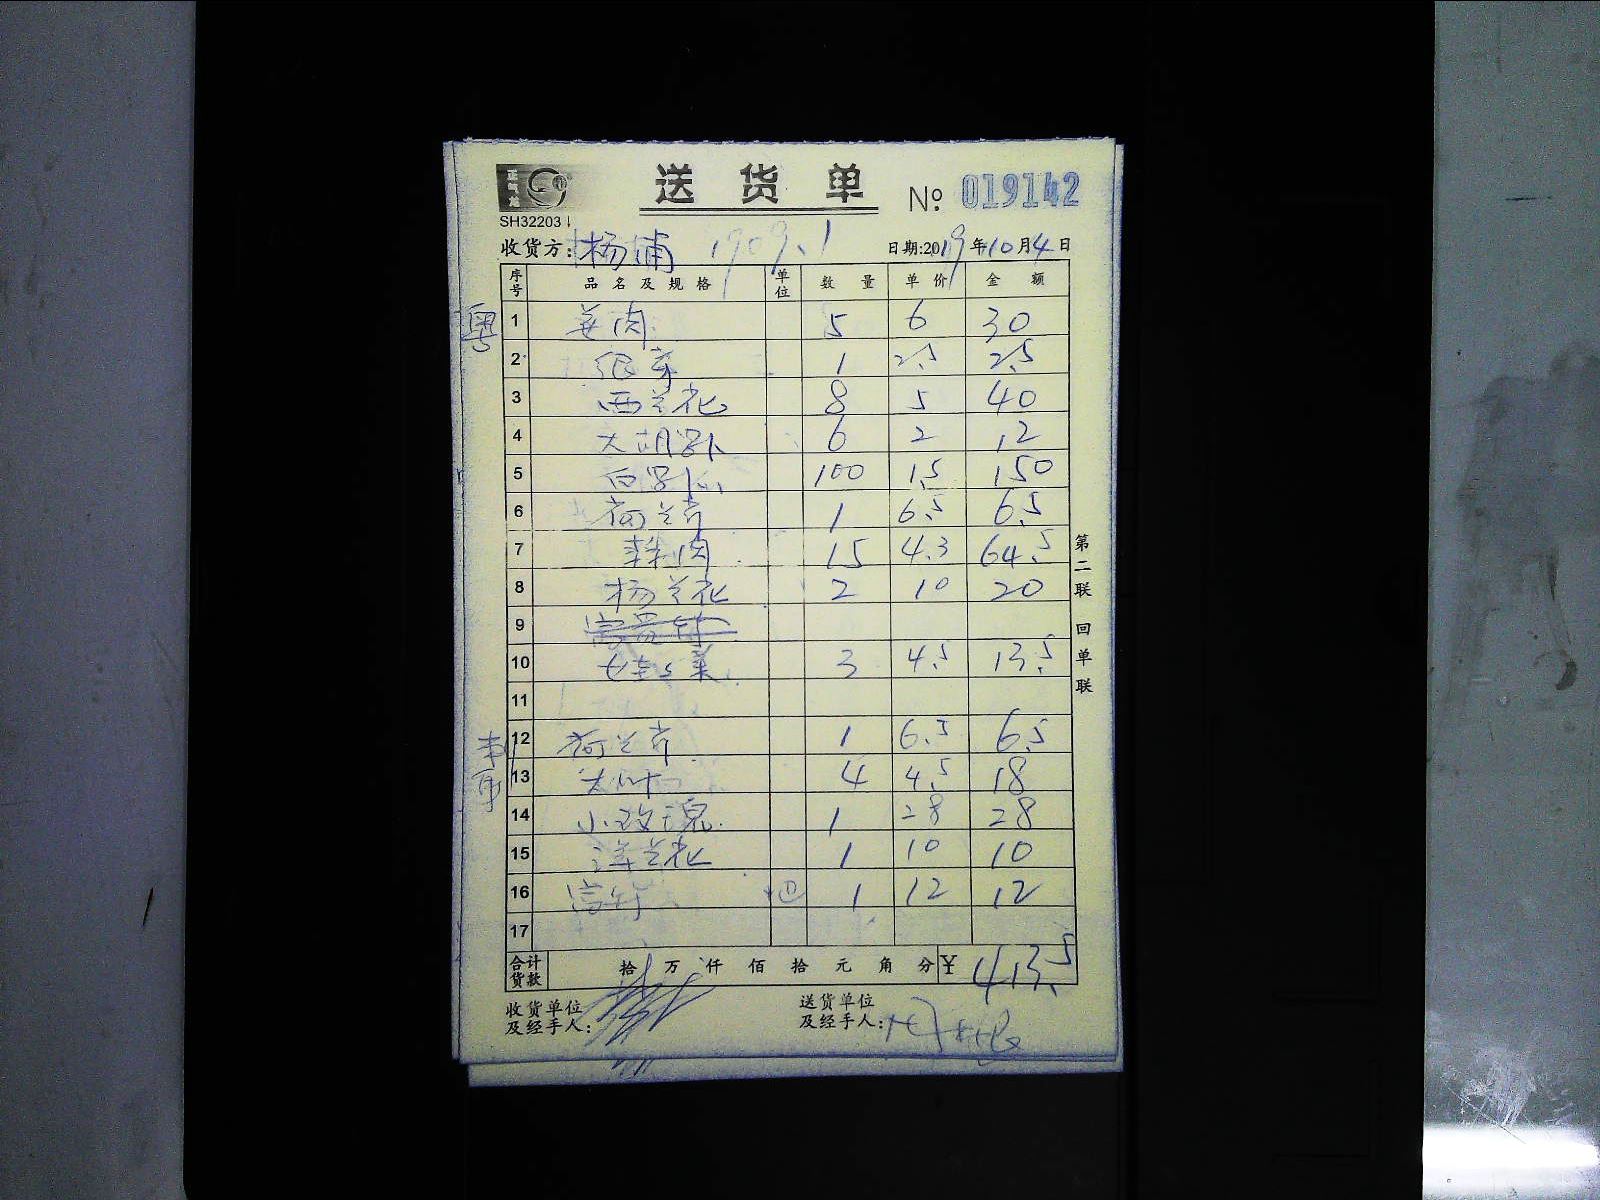 正气龙
送货单 № 019142
SH32203
收货方: 杨浦 1909.1 日期:2019年10月4日
序号 品名及规格 单位 数量 单价 金额
粤
1 姜肉 5 6 30
2 银芽 1 2.5 2.5
3 西兰花 8 5 40
4 大胡萝卜 6 2 12
5 白萝卜 100 1.5 150
6 荷兰芹 1 6.5 6.5
7 蒜肉 15 4.3 64.5
8 杨兰花 2 10 20
9 富贵竹
10 3 4.5 13.5
11
12 荷兰芹 1 6.5 6.5
13 大叶 4 4.5 18
14 小玫瑰 1 28 28
15 洋兰花 1 10 10
16 富竹 1 12 12
17
合计货款 拾 万 仟 佰 拾 元 角 分 ¥ 413.5
收货单位及经手人:
送货单位及经手人:
第二联 回单联